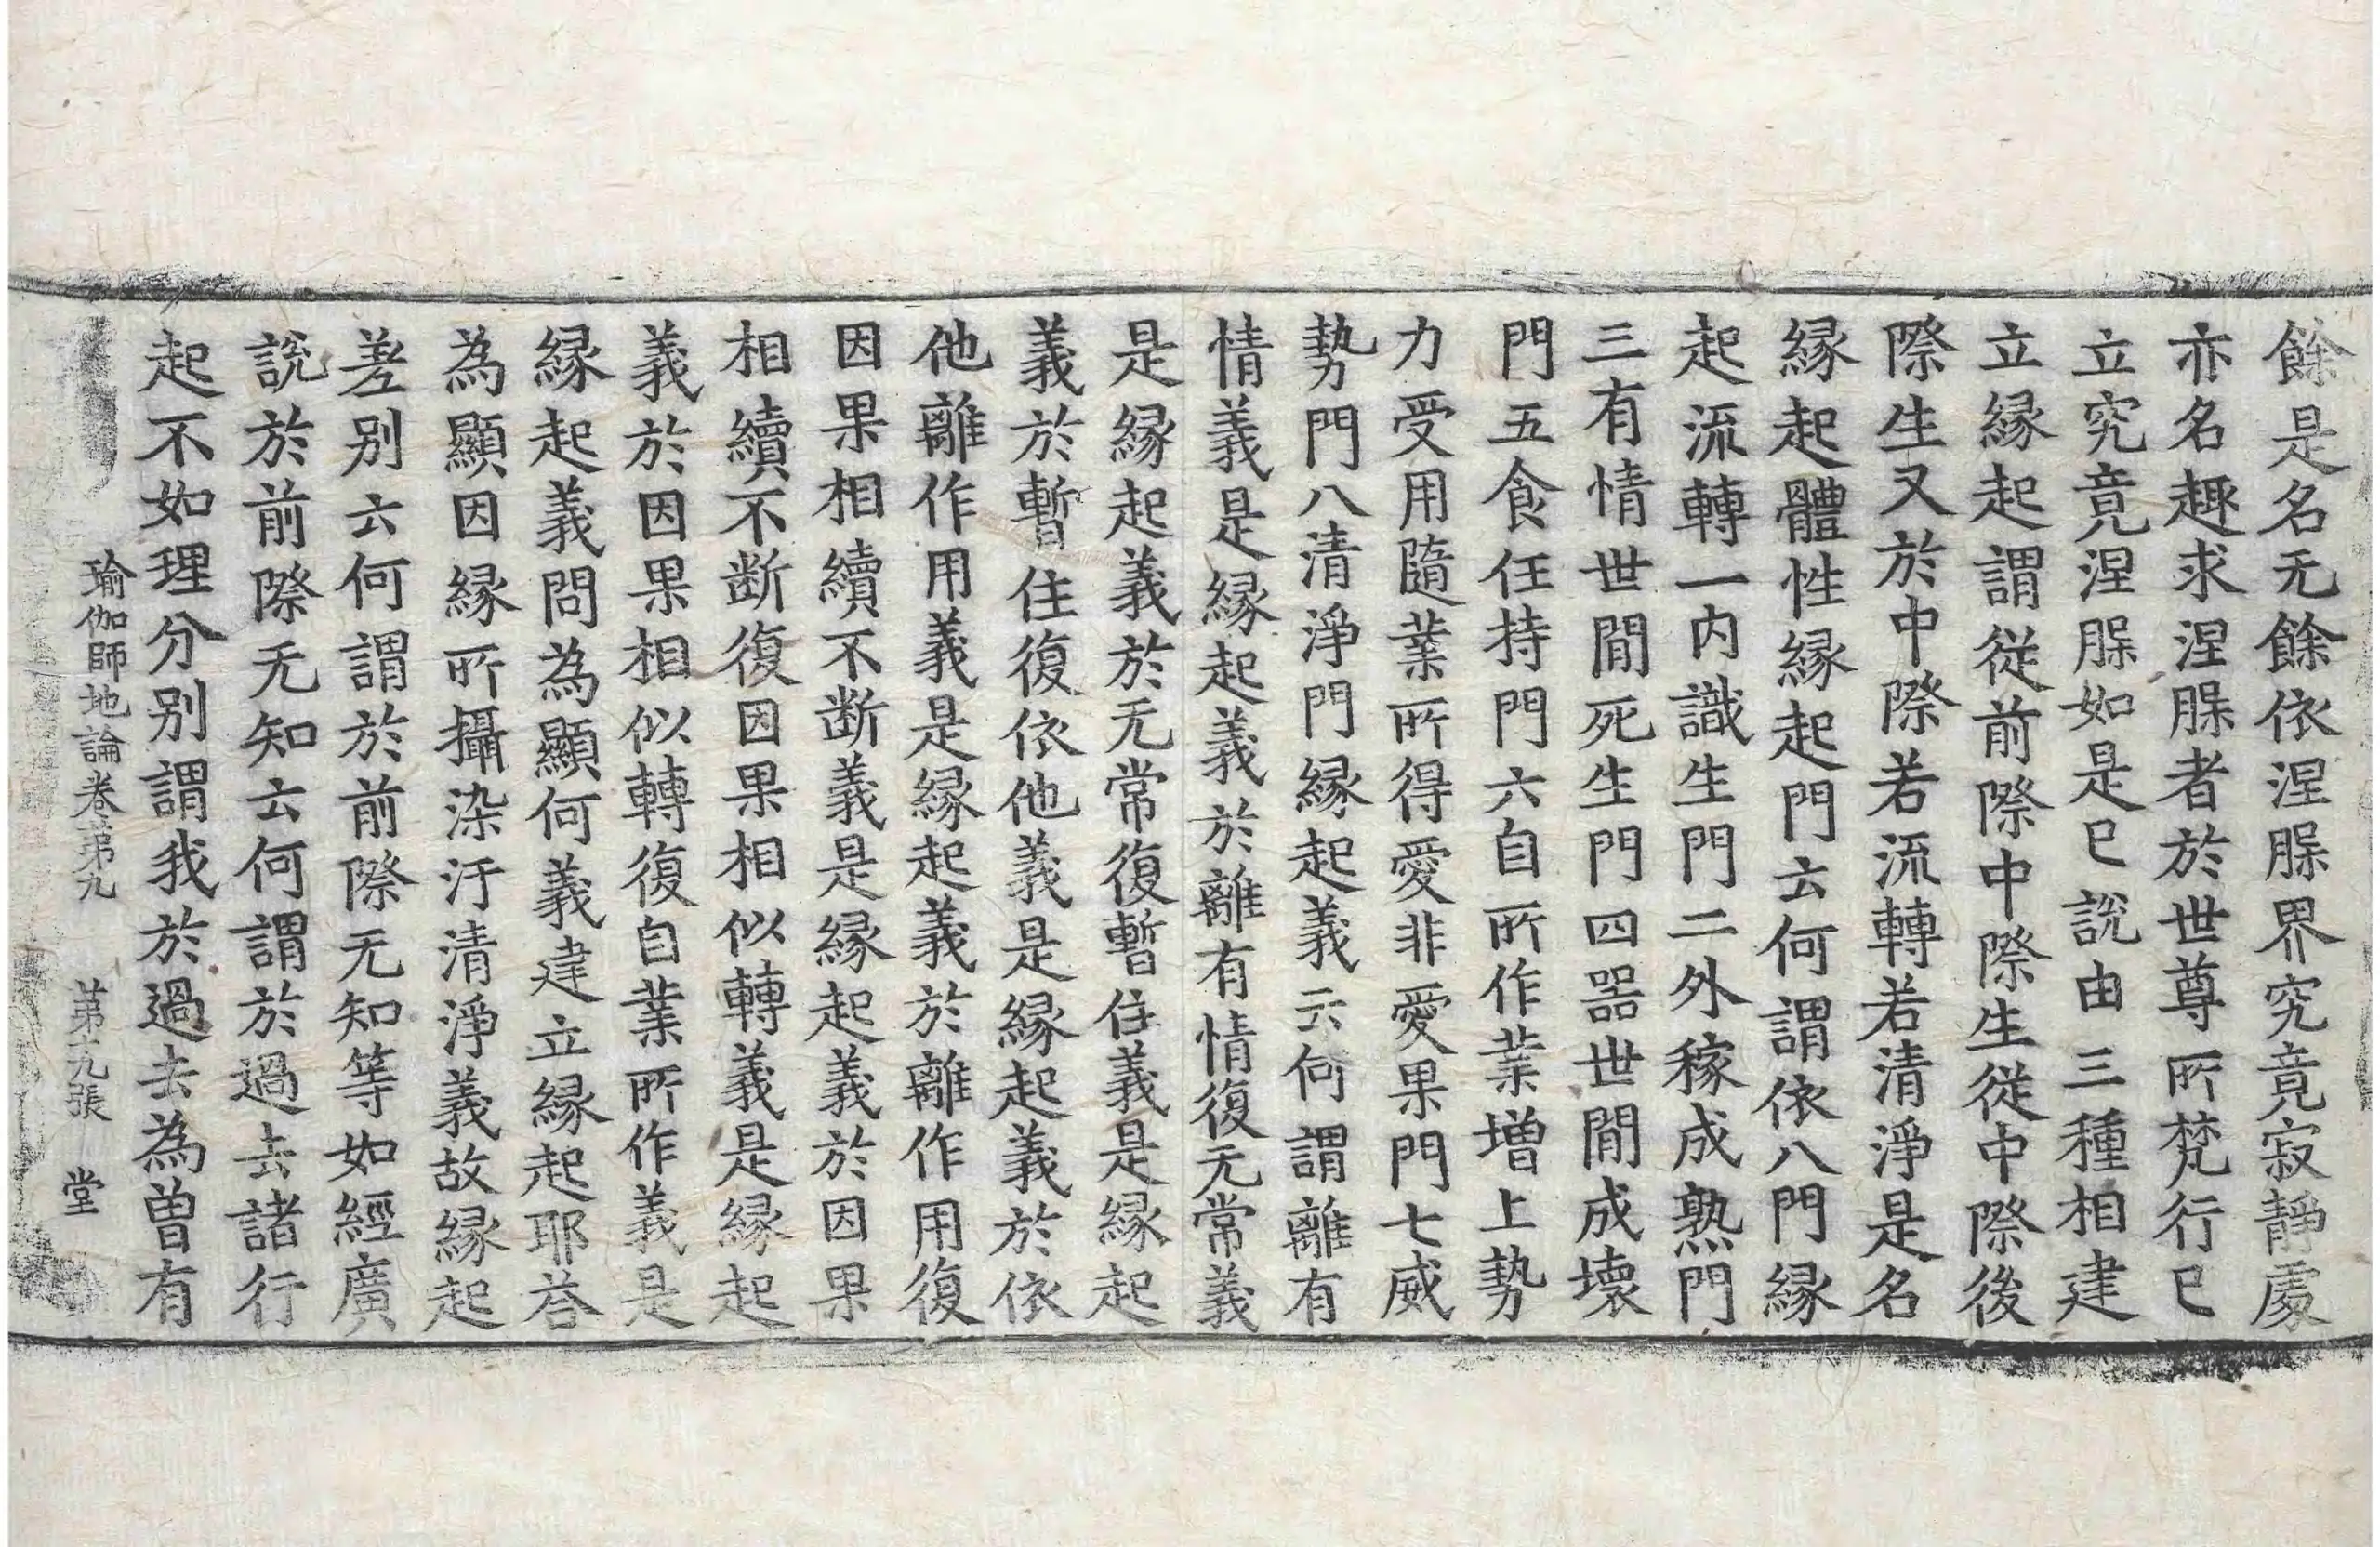 餘是名无餘依涅槃界究竟寂靜處
亦名趣求涅槃者於世尊所梵行已
立究竟涅槃如是已說由三種相建
立縁起謂從前際中際生從中際後
際生又於中際若流轉若清淨是名
縁起體性縁起門云何謂依八門縁
起流轉一内識生門二外稼成熟門
三有情世間死生門四器世間成壞
門五食任持門六自所作業增上勢
力受用隨業所得愛非愛果門七威
勢門八清淨門縁起義云何謂離有
情義是縁起義於離有情復无常義
是縁起義於无常復暫住義是縁起
義於暫住復依他義是縁起義於依
他離作用義是縁起義於離作用復
因果相續不断義是縁起義於因果
相續不断復因果相似轉義是縁起
義於因果相似轉復自業所作義是
縁起義問為顯何義建立縁起耶荅
為顯因縁所攝染汙清淨義故縁起
差别云何謂於前際无知等如經廣
說於前際无知云何謂於過去諸行
起不如理分别謂我於過去為曽有
瑜伽師地論卷苐九 苐九張 堂